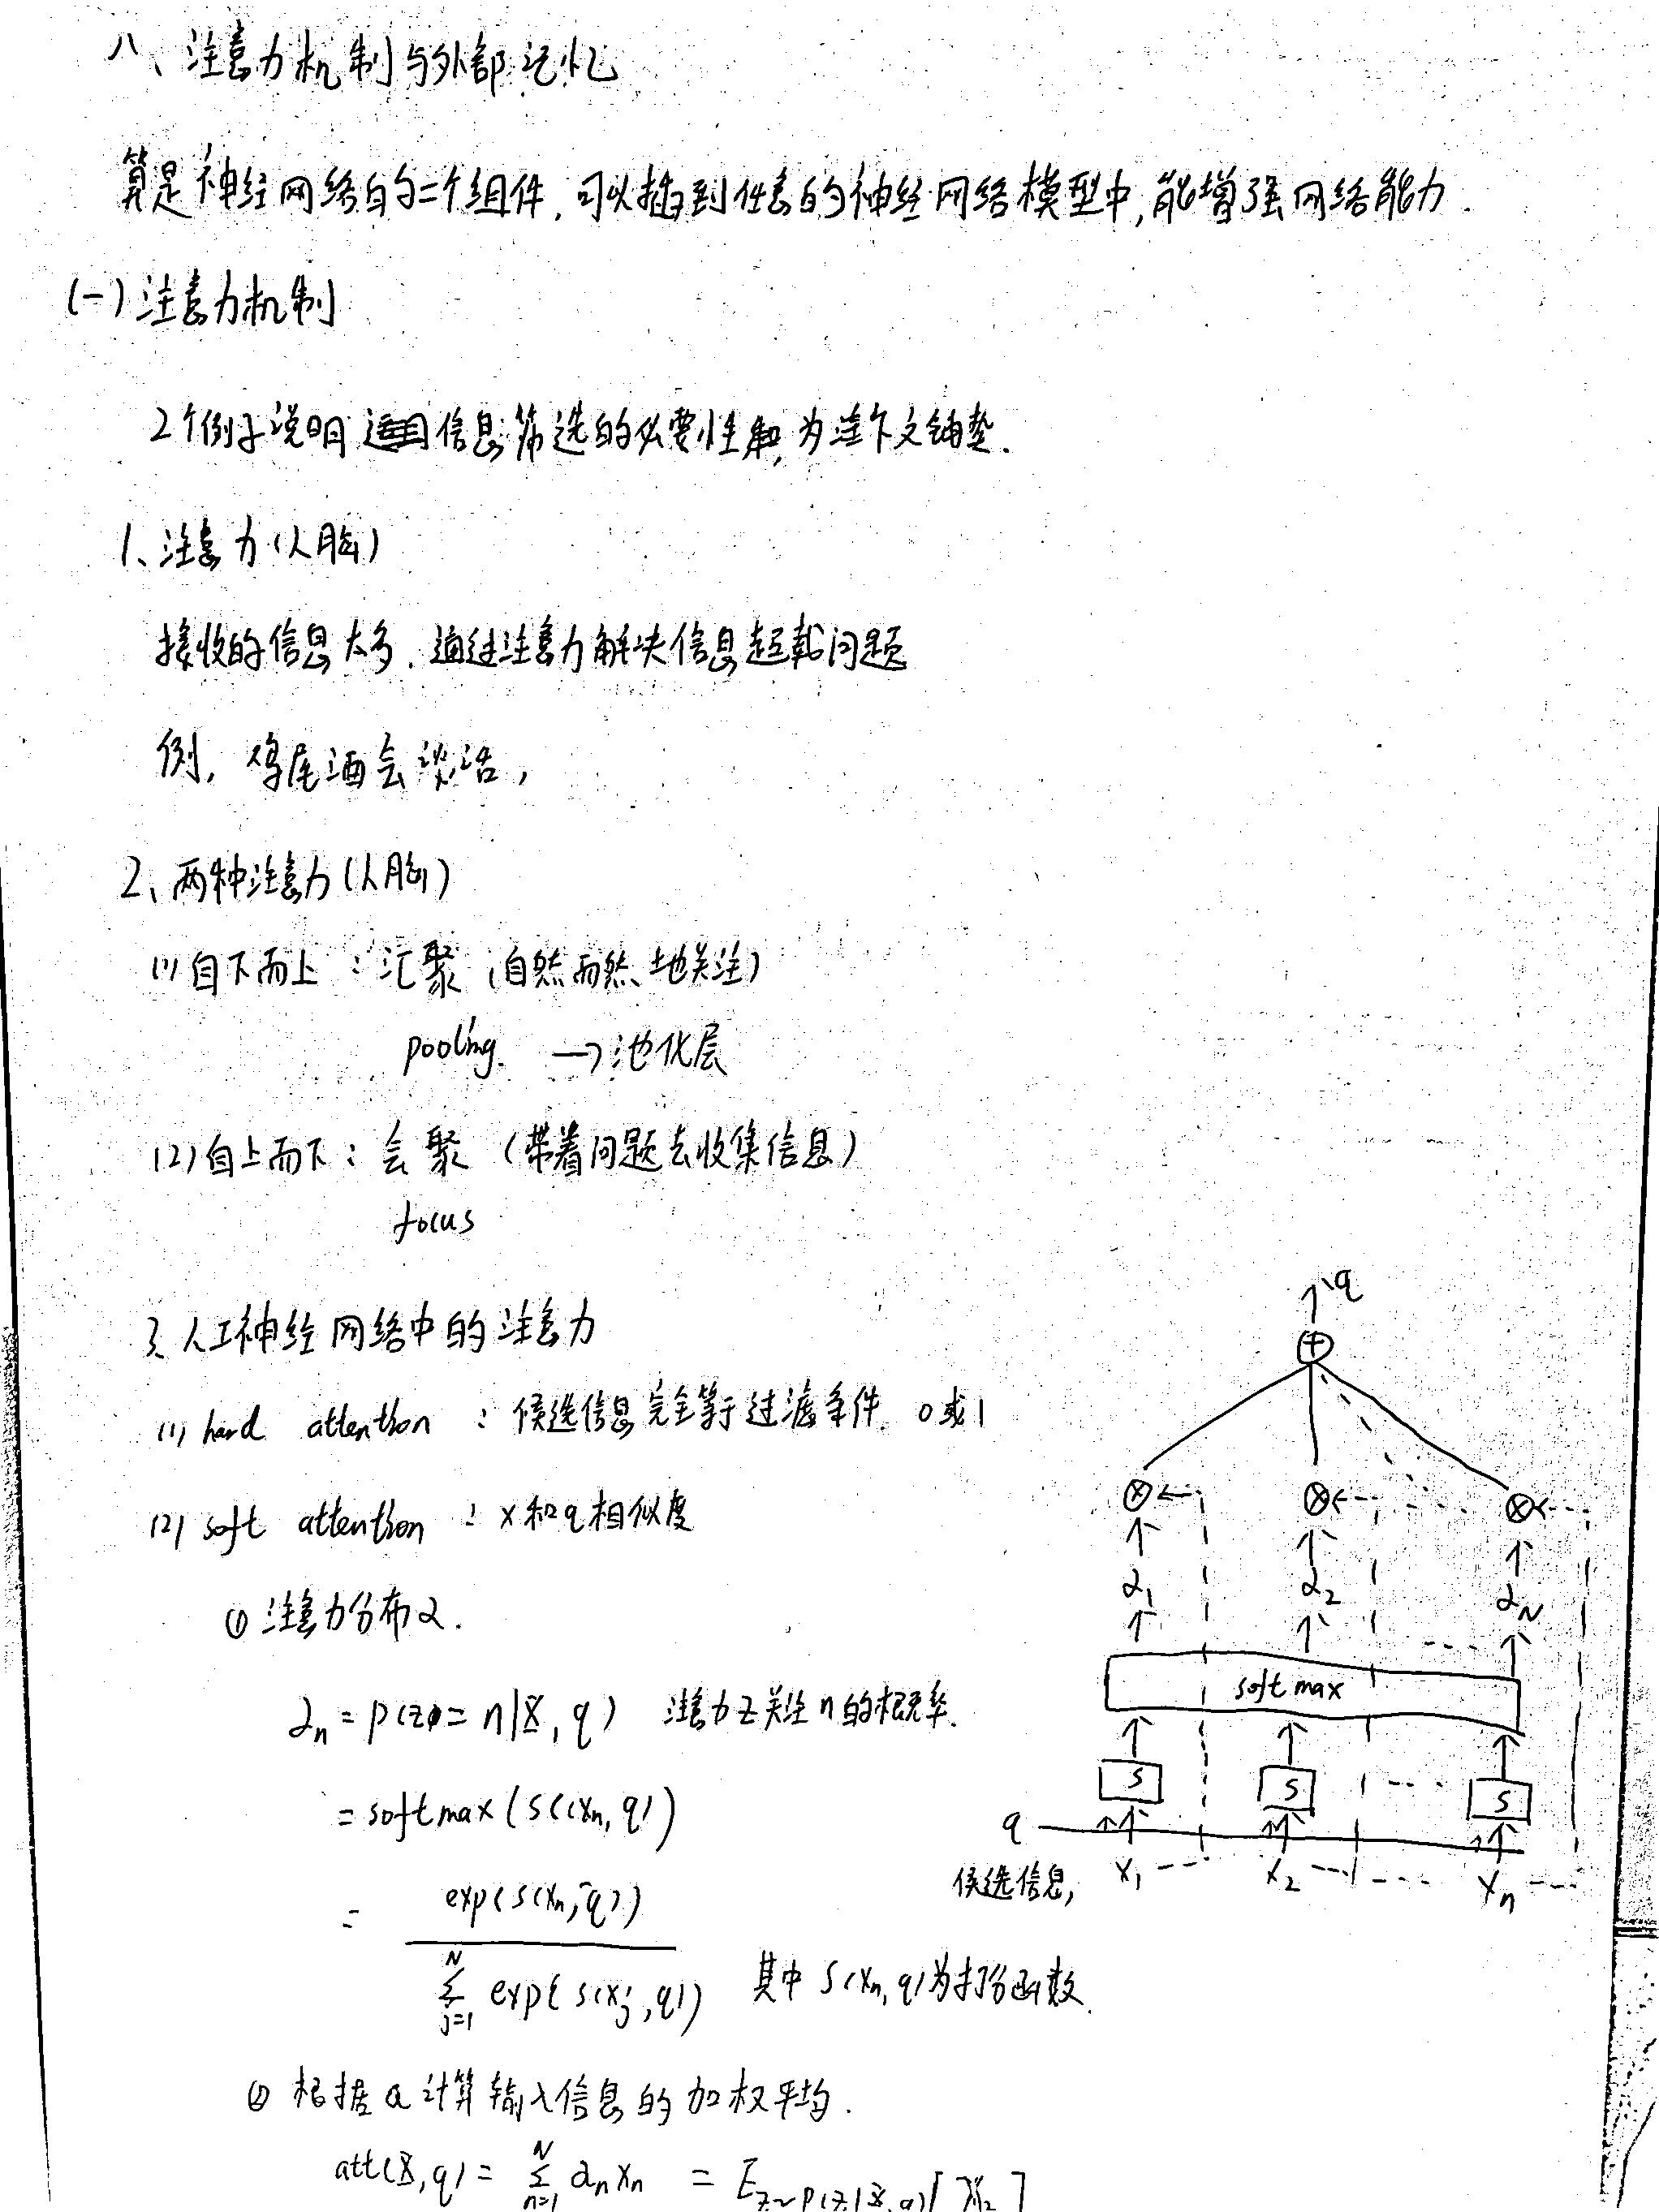 八、注意力机制与外部记忆
算是神经网络的二个组件,可以插到任意的神经网络模型中,能增强网络能力.
(一)注意力机制
2个例子说明信息筛选的必要性,为下文铺垫.
1、注意力(人脑)
接收的信息太多,通过注意力解决信息超载问题
例,鸡尾酒会谈话,
2、两种注意力(人脑)
(1)自下而上:汇聚(自然而然地关注)
pooling. →池化层
(2)自上而下:会聚(带着问题去收集信息)
focus
3、人工神经网络中的注意力
(1) hard attention:候选信息完全等于过滤条件. 0或1
(2) soft attention:x和q相似度
①注意力分布α.
αn = p(z = n|X, q) 注意力z关注n的概率.
= softmax(s(xn, q))
= exp(s(xn, q)) / Σ_{j=1}^{N} exp(s(xj, q)) 其中s(xn, q)为打分函数.
②根据α计算输入信息的加权平均.
att(X, q) = Σ_{n=1}^{N} αn xn = E_{z~p(z|X,q)}[
q
α1 α2 αN
softmax
s s s
q
候选信息, x1 x2 xn